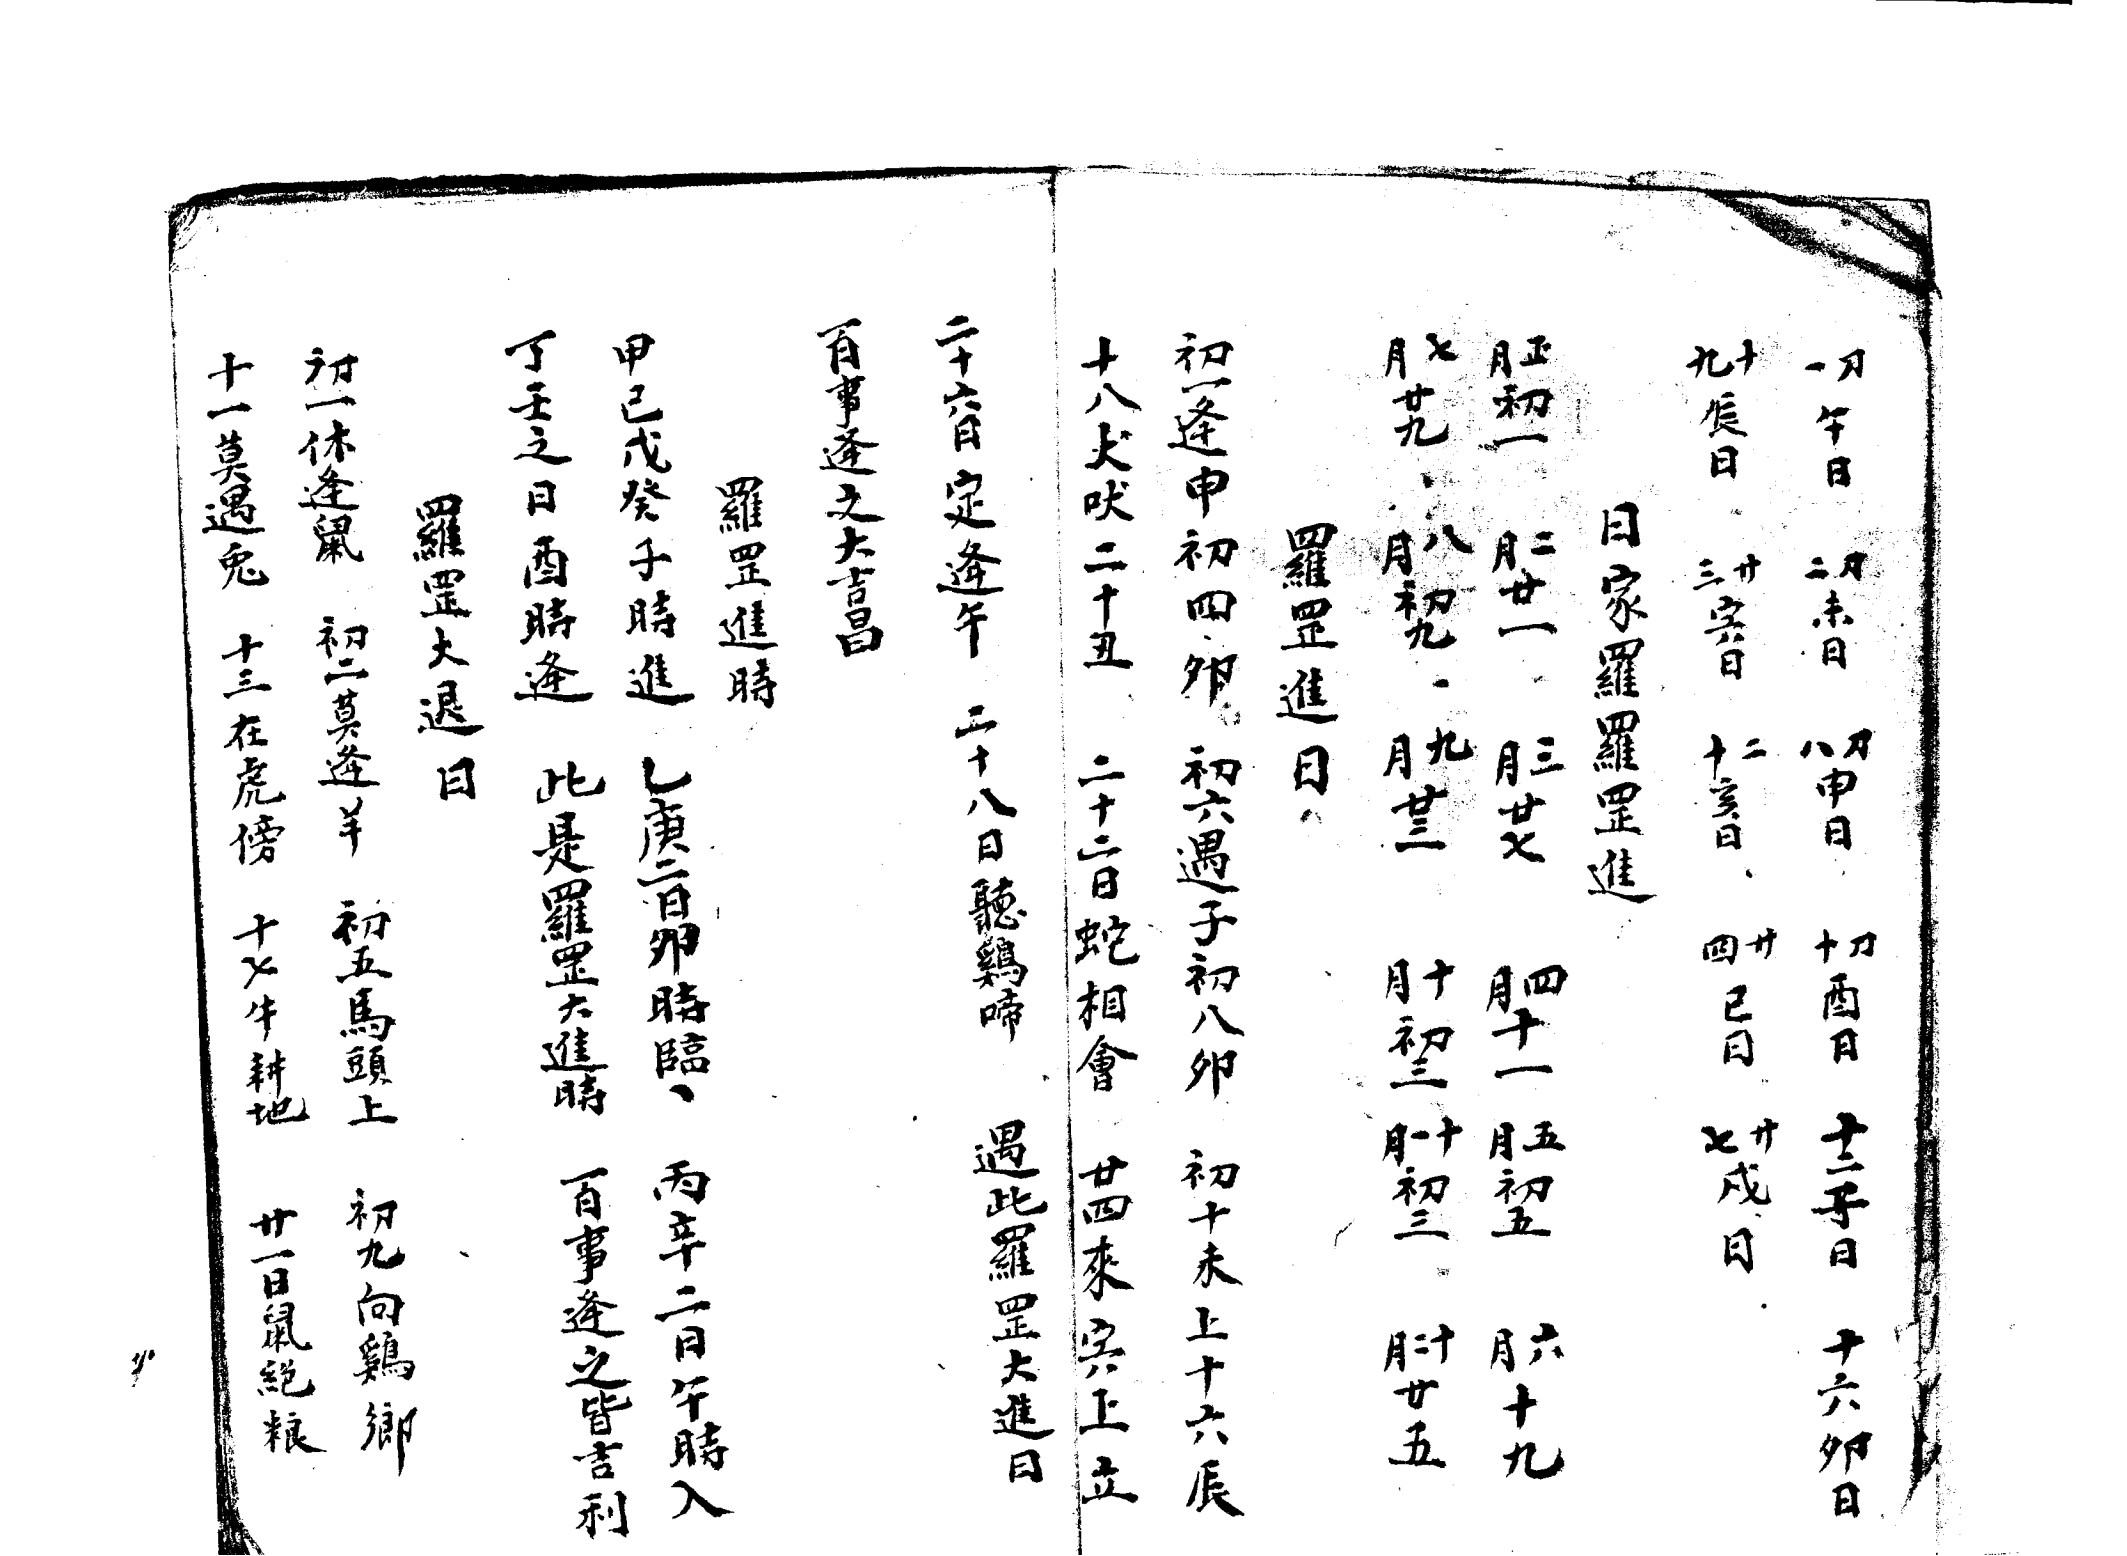 初一午日 初二未日 初八申日 初十酉日 十二子日 十六卯日
十九辰日 廿三寅日 二十亥日 廿四巳日 廿七戌日
日家羅羅罡進
正月初一 二月廿一 三月廿七 四月十一 五月初五 六月十九
七月廿九 八月初九 九月廿三 十月初三 十一月初三 十二月廿五
羅罡進日
初一逢申初四卯 初六遇子初八卯 初十未上十六辰
十八犬吠二十丑 二十二日蛇相會 廿四來寅上立
二十六日定逢午 二十八日聽鷄啼 遇此羅罡大進日
百事逢之大吉昌
羅罡進時
甲己戊癸子時進 乙庚二日卯時臨 丙辛二日午時入
丁壬之日酉時逢 此是羅罡大進時 百事逢之皆吉利
羅罡大退日
初一休逢鼠 初二莫逢羊 初五馬頭上 初九向鷄鄉
十一莫遇兔 十三在虎傍 十七牛耕地 廿一日鼠絕粮